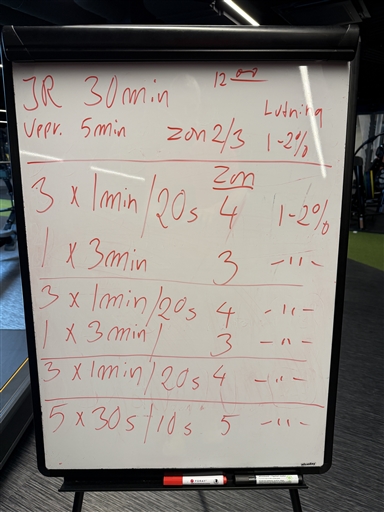 JR 30min 12
Lutning
Uppv. 5min zon 2/3 1-2%
zon
3 x 1min/20s 4 1-2%
1 x 3min 3 -"-
3 x 1min/20s 4 -"-
1 x 3min/ 3 -"-
3 x 1min/20s 4 -"-
5 x 30s/10s 5 -"-